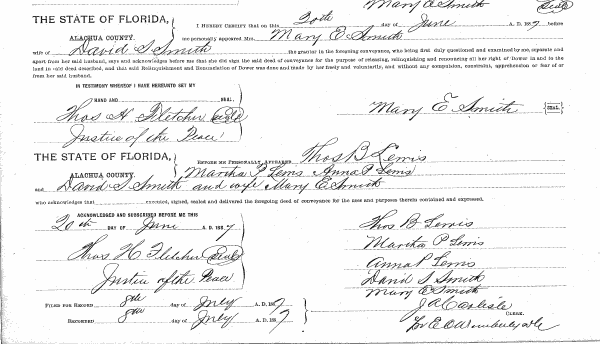 Mary E Smith (Seal)
THE STATE OF FLORIDA,
ALACHUA COUNTY.
I HEREBY CERTIFY that on this 20th day of June A. D. 1887 before
me personally appeared Mrs. Mary E Smith
wife of David S Smith the grantor in the foregoing conveyance, who being first duly questioned and examined by me, separate and
apart from her said husband, says and acknowledges before me that she did sign the said deed of conveyance for the purpose of releasing, relinquishing and renouncing all her right of Dower in and to the
land in said deed described, and that said Relinquishment and Renunciation of Dower was done and made by her freely and voluntarily, and without any compulsion, constraint, apprehension or fear of or
from her said husband.
IN TESTIMONY WHEREOF I HAVE HEREUNTO SET MY
HAND AND SEAL,
Thos H. Fletcher (Seal)
Justice of the Peace
Mary E Smith [SEAL]
THE STATE OF FLORIDA,
ALACHUA COUNTY.
BEFORE ME PERSONALLY APPEARED Thos B Lewis
Martha P Lewis Anna P Lewis
and David S Smith and wife Mary E Smith
who acknowledges that executed, signed, sealed and delivered the foregoing deed of conveyance for the uses and purposes therein contained and expressed.
ACKNOWLEDGED AND SUBSCRIBED BEFORE ME THIS
20th DAY OF June A. D. 1887
Thos H. Fletcher (Seal)
Justice of the Peace
Thos B Lewis
Martha P Lewis
Anna P Lewis
David S Smith
Mary E Smith
FILED FOR RECORD 8th day of July A. D. 1887
RECORDED 8th day of July A. D. 1887
J A Carlisle
CLERK.